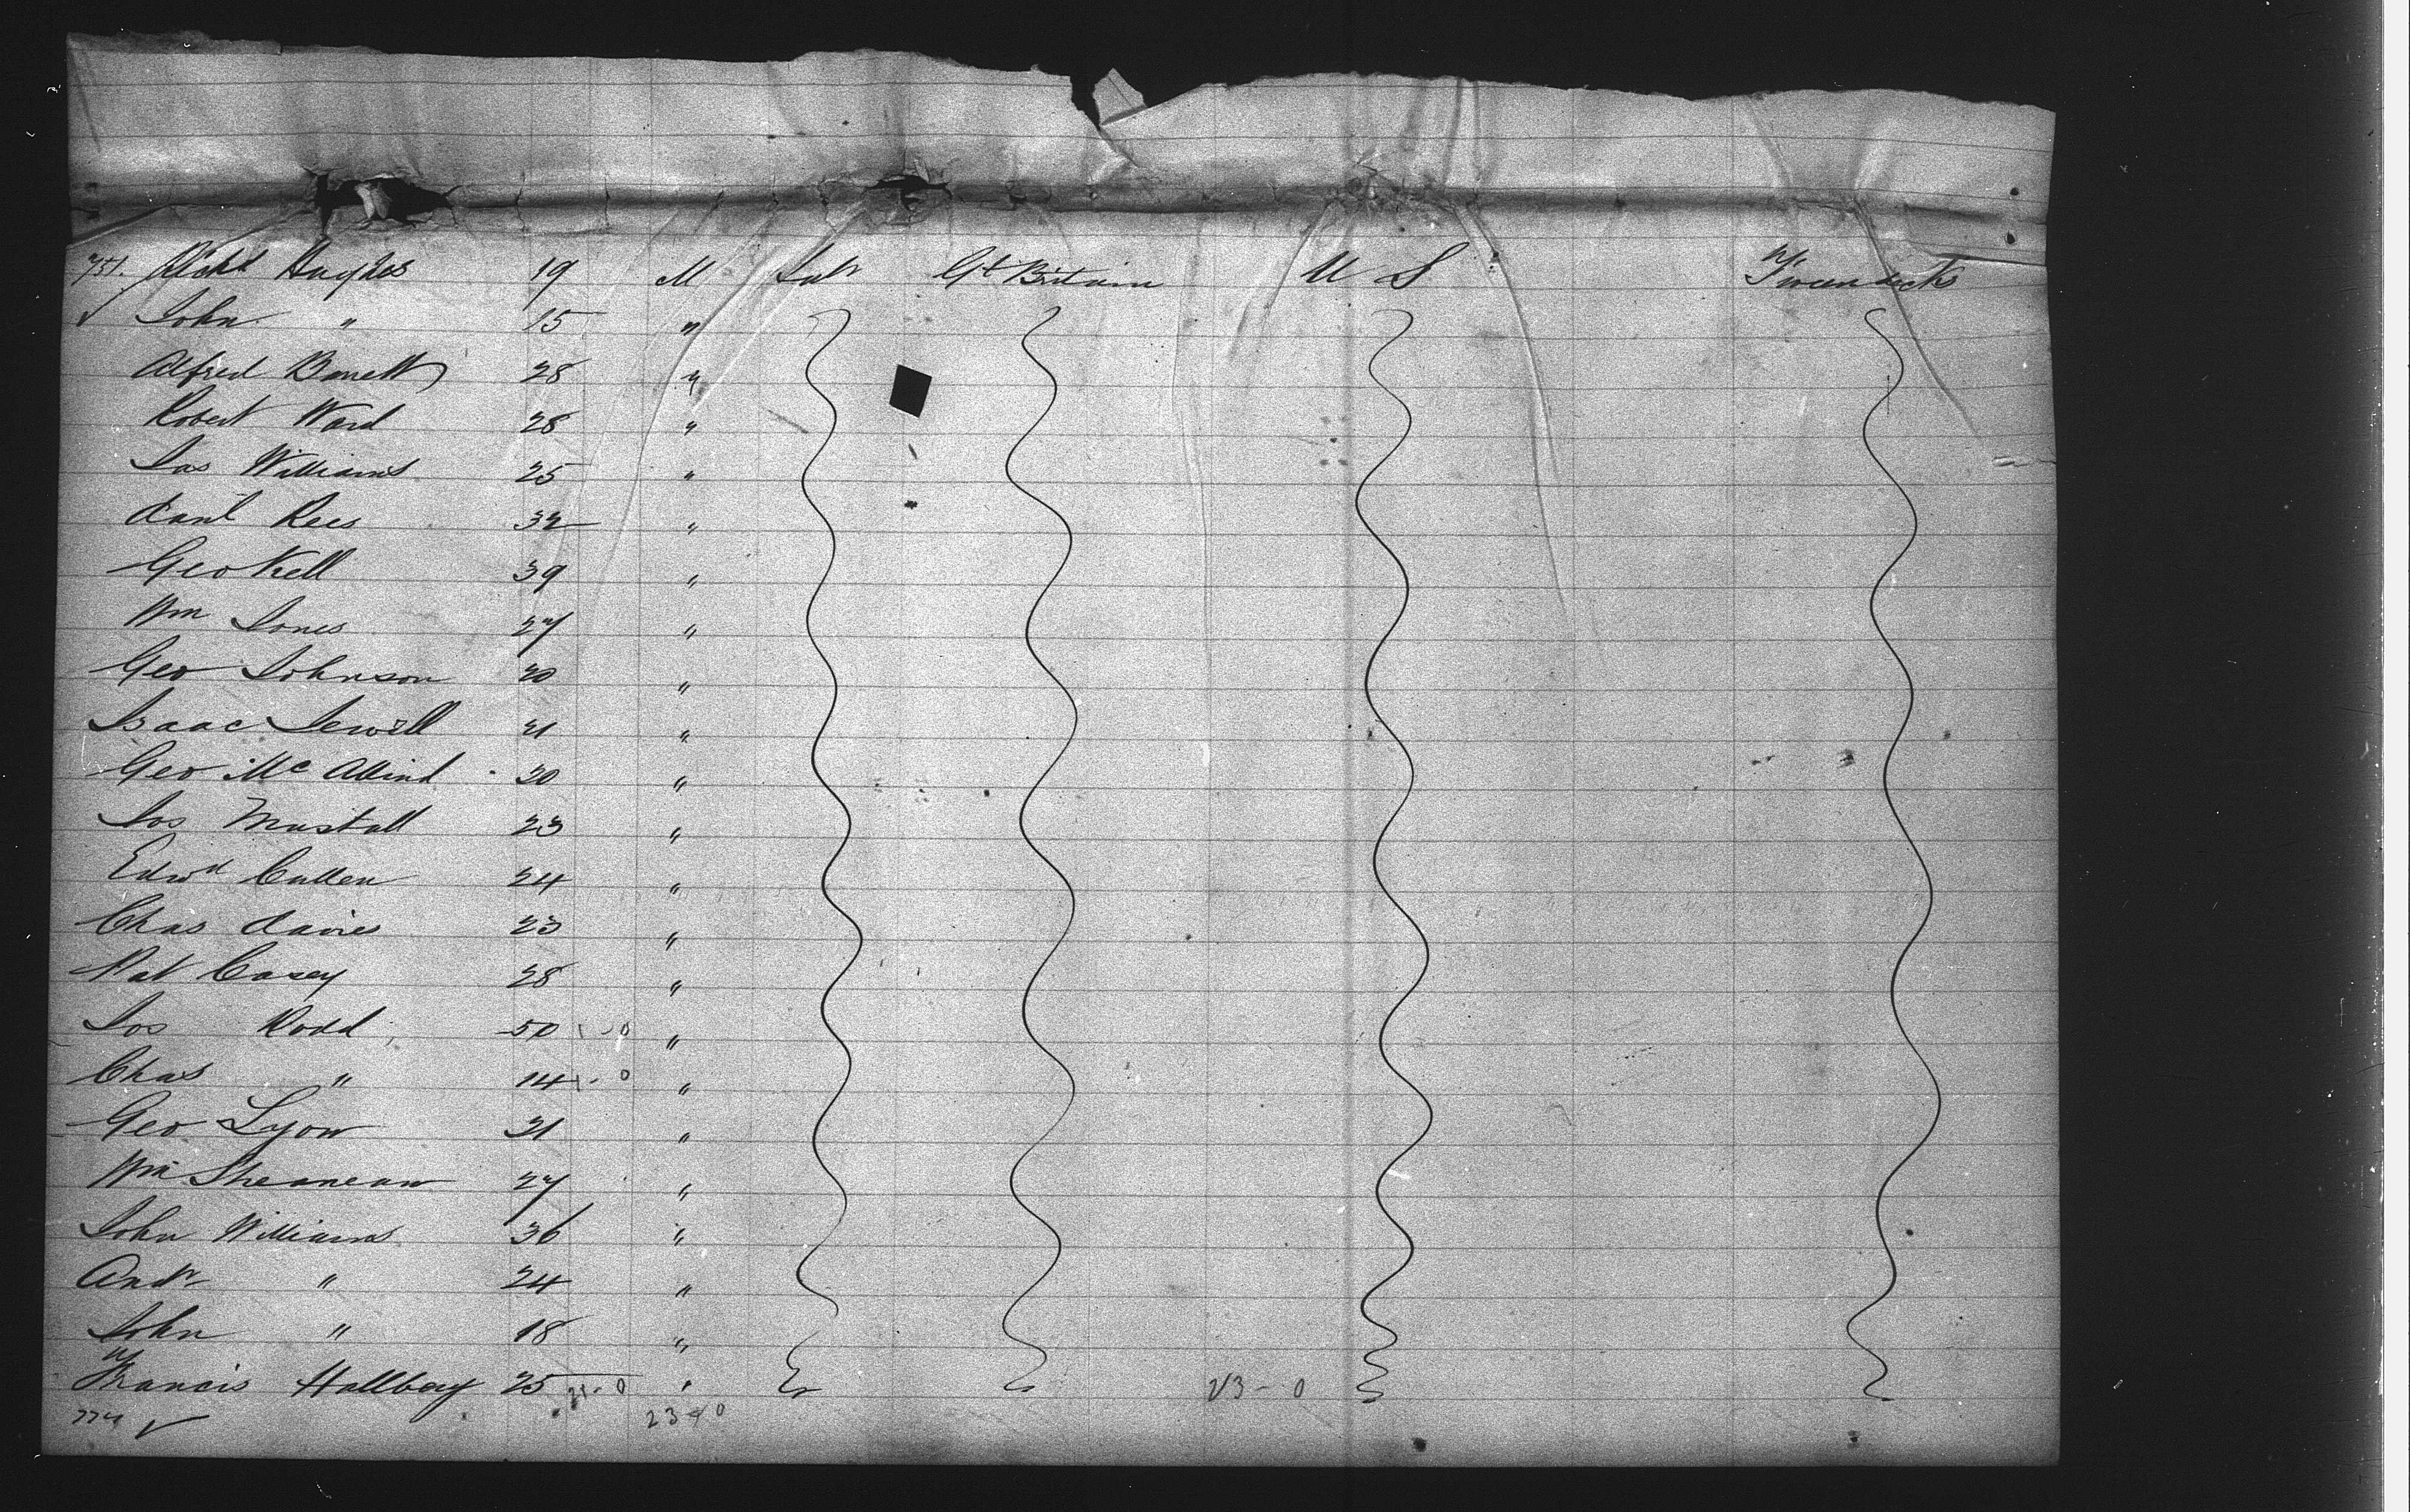 751. Richd Hughes 19 M Labr Gt Britain U S Tweendecks
John " 15 "
Alfred Barrett 28 "
Robert Ward 28 "
Jas Williams 25 "
Danl Rees 32 "
Geo Kell 39 "
Wm Jones 27 "
Geo Johnson 20 "
Isaac Sewell 21 "
Geo Mc 20 "
Jos 23 "
Edwd Cullen 24 "
Chas Davies 23 "
Pat Casey 28 "
Jos Rodd 50 1-0 "
Chas " 14 1-0 "
Geo Lyon 21 "
Wm 27 "
John Williams 36 "
Andr " 24 "
John " 18 "
Francis Hallbery 25 21-0 " 23-0
23-0